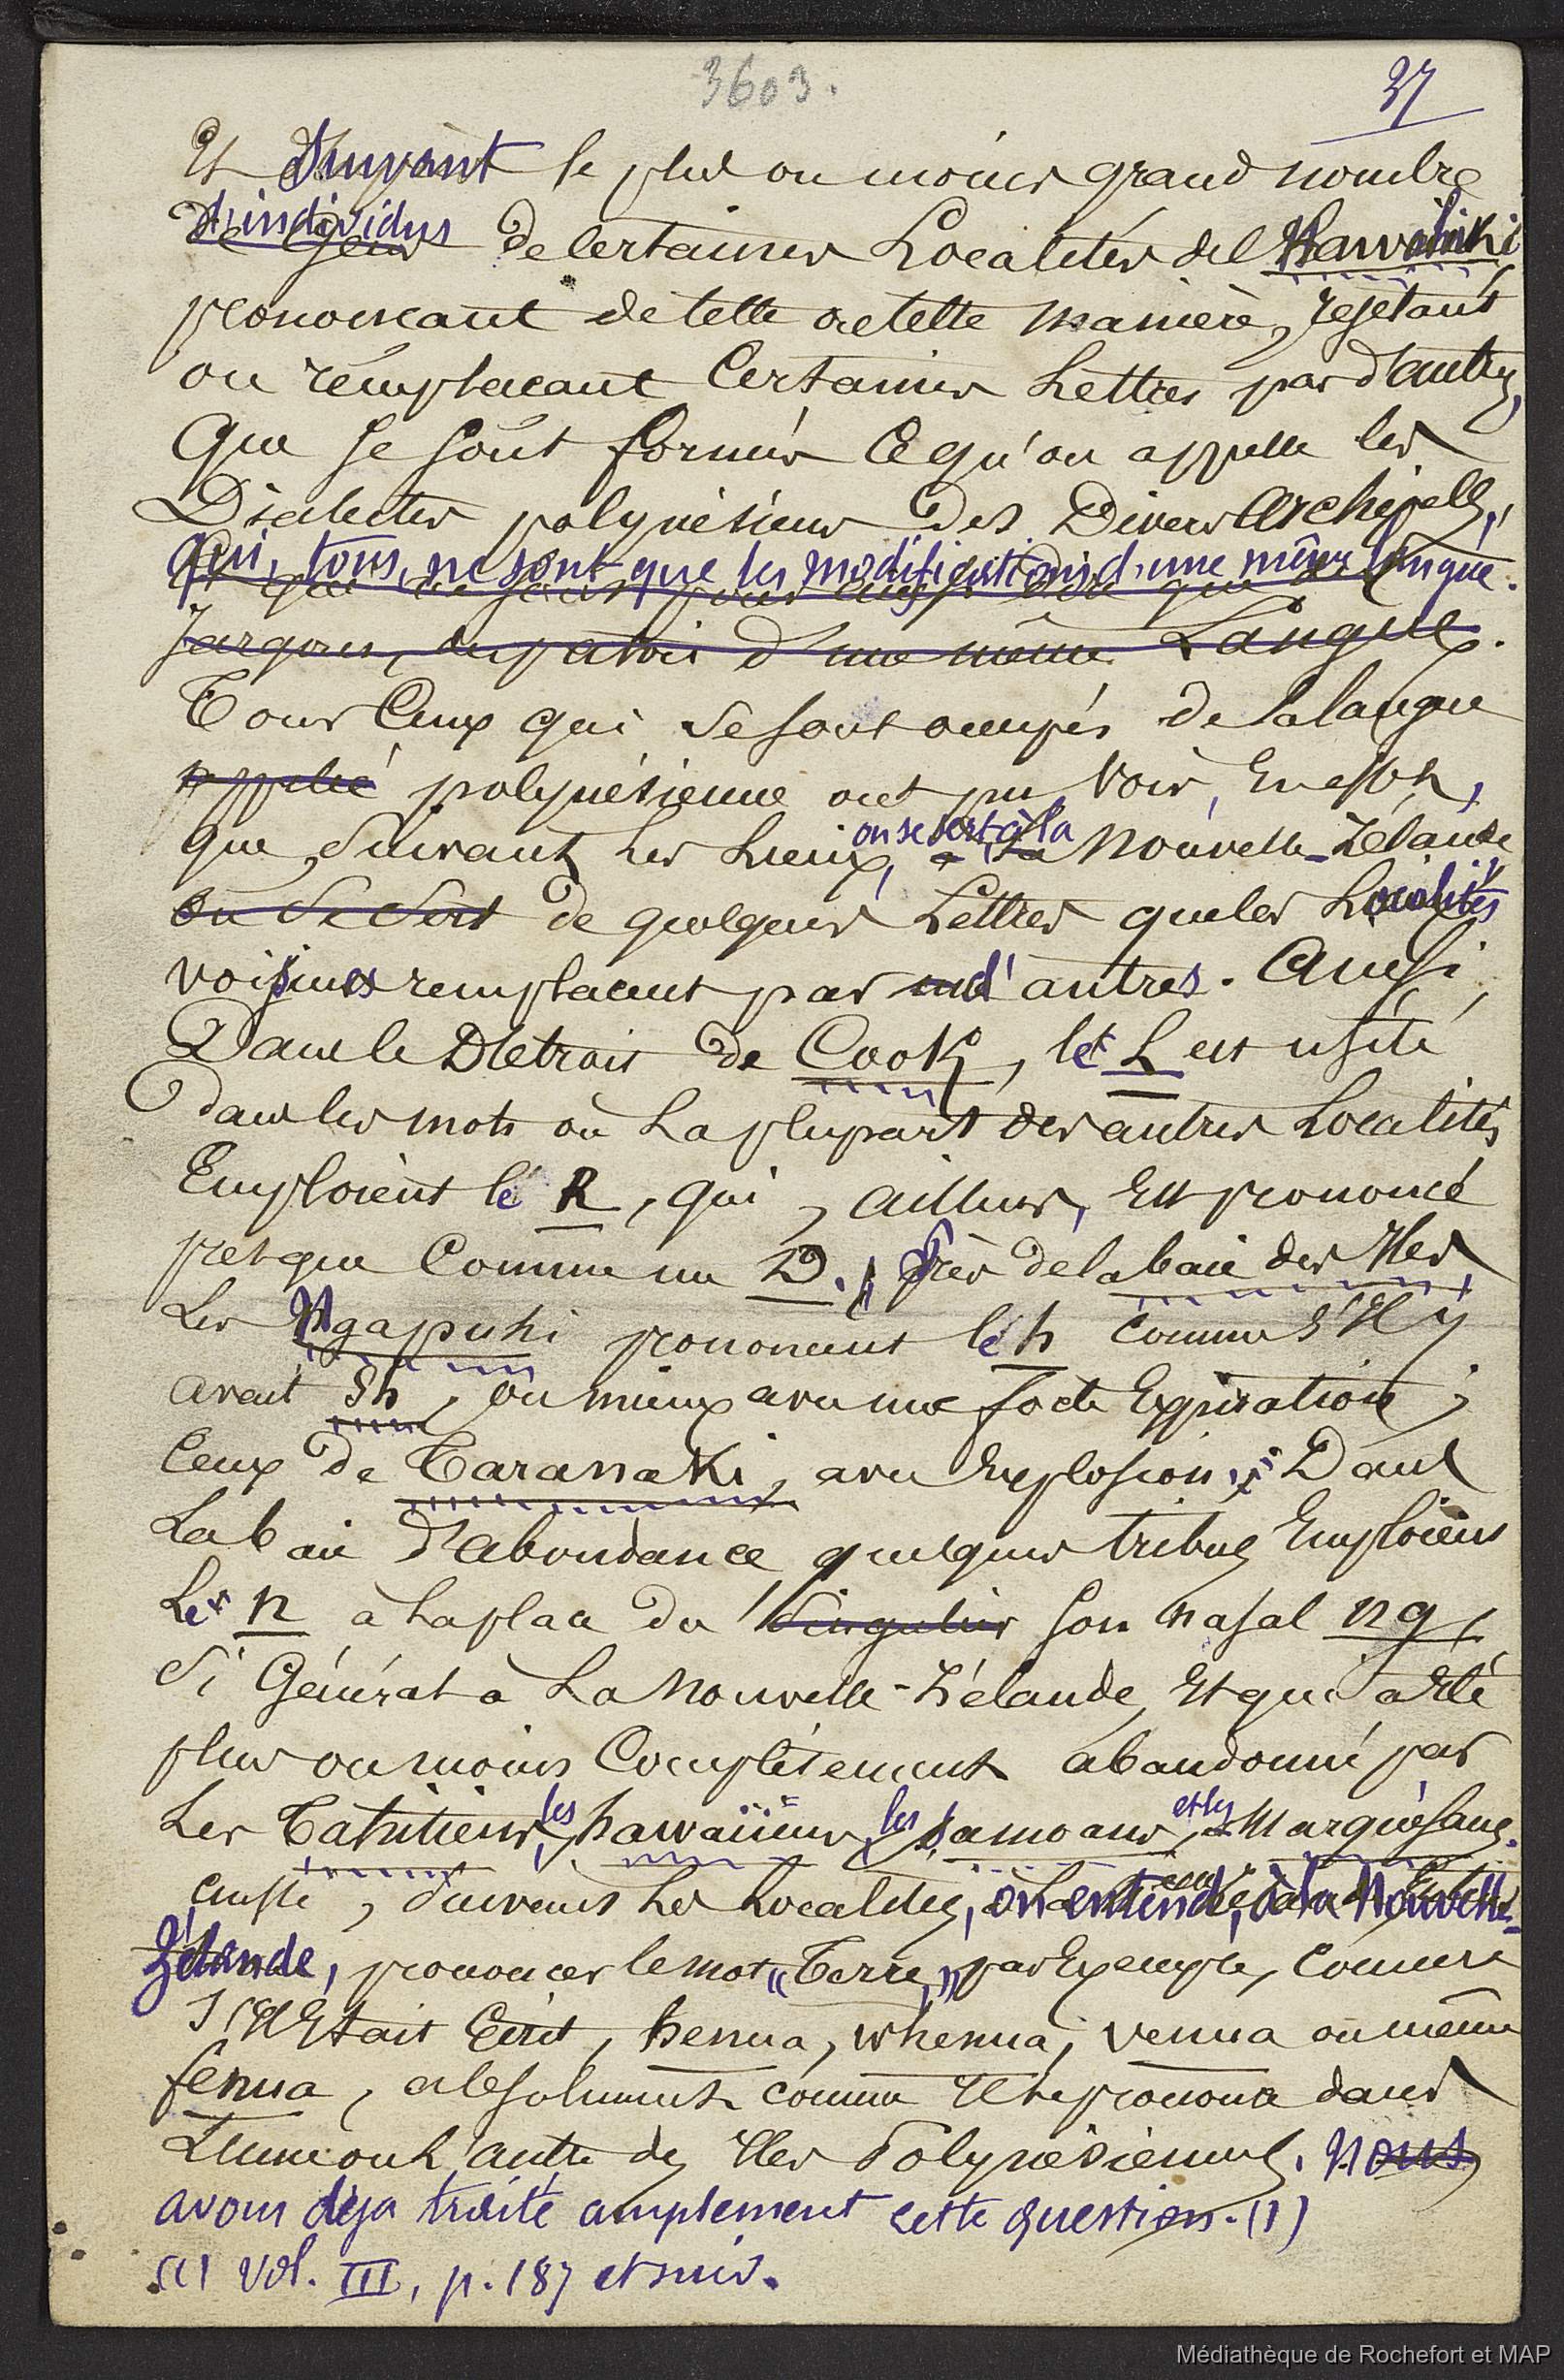 3603.
37
Et Suivant le plus ou moins grand nombre
d'individus
de Gens de certaines Localités del Hawahiki
prononcant de telle ou telle manière, rejetant
ou remplacant Certaines Lettres par d'autres,
Que se sont formés Ce qu'on appelle les
Dialectes polynésiens des Divers Archipells,
qui, tous, ne sont que les modifications d'une même langue.
Jargons, du patois d'une même Langue.
Tous Ceux qui se sont occupés de la langue
appelée polynésienne ont pu voir, En effet,
on se sert à la
que, Suivant Les Lieux, à la Nouvelle-Zélande
on se sert de quelques Lettres que les Localités
voisines remplacent par d'autres. Ainsi,
Dans le Détroit de Cook, le L est usité
dans les mots où La plupart des autres Localités
Emploient le R, qui, ailleurs, Est prononcé
presque Comme un D. Près de la baie des Iles
Les Ngapuhi prononcent le h comme s'Il y
avait sh, ou mieux avec une forte Expiration;
Ceux de Taranaki, avec Explosion; Dans
La baie d'abondance quelques tribus Emploient
Le n à La place du singulier son nasal ng,
Si Général à La Nouvelle-Zélande, Et qui a été
plus ou moins Complètement abandonné par
les les et les
Les Tahitiens, hawaïiens, Samoans, Marquésans.
Ainsi, suivant Les Localités, on entend, à la Nouvelle-
Zélande, prononcer le mot "Terre," par Exemple, Comme
s'Il Etait Ecrit, henua, whenua, venua ou même
fenua, absolument comme Il se prononce dans
L'une ou L'autre des Iles Polynésiennes. Nous
avons déja traité amplement cette question. (1)
(1) Vol. III, p. 187 et suiv.
Médiathèque de Rochefort et MAP